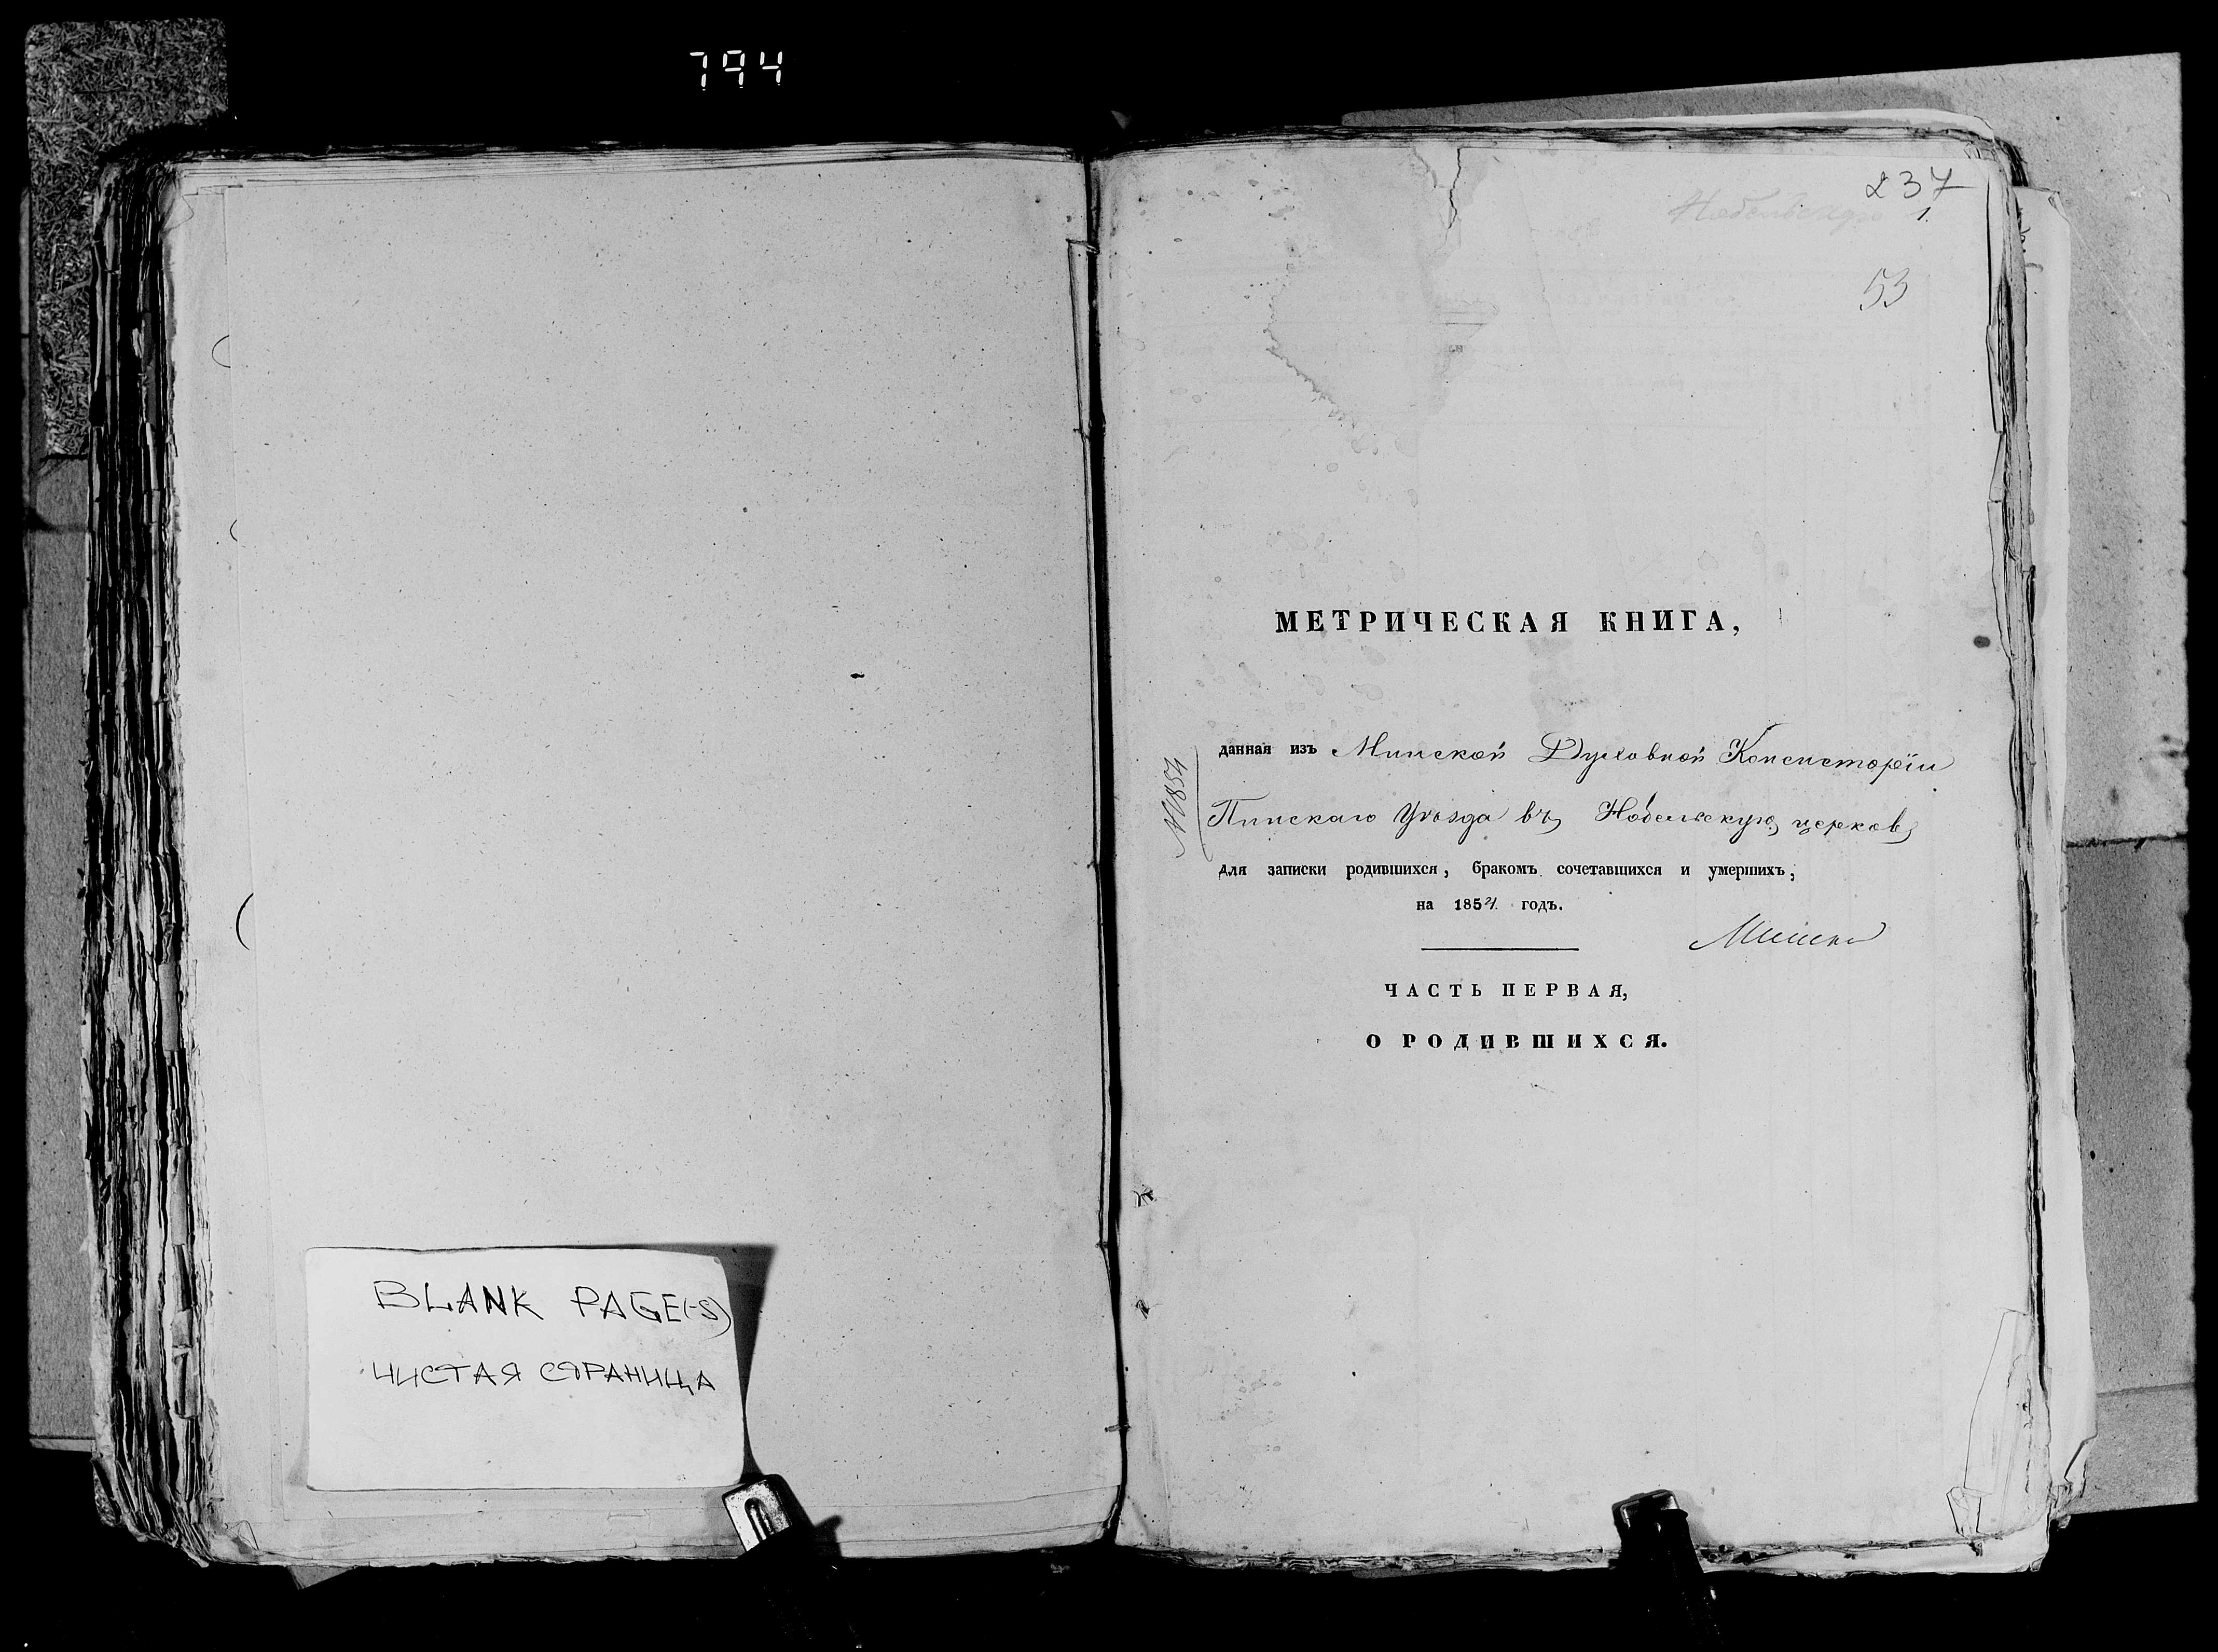 794
BLANK PAGE(-S)
ЧИСТАЯ СТРАНИЦА
237
1.
53
МЕТРИЧЕСКАЯ КНИГА,
данная изъ Минской Духовной Консисторіи
Пинскаго Уѣзда въ Нобельскую церковь
для записки родившихся, бракомъ сочетавшихся и умершихъ,
на 1854 годъ.
ЧАСТЬ ПЕРВАЯ,
О РОДИВШИХСЯ.